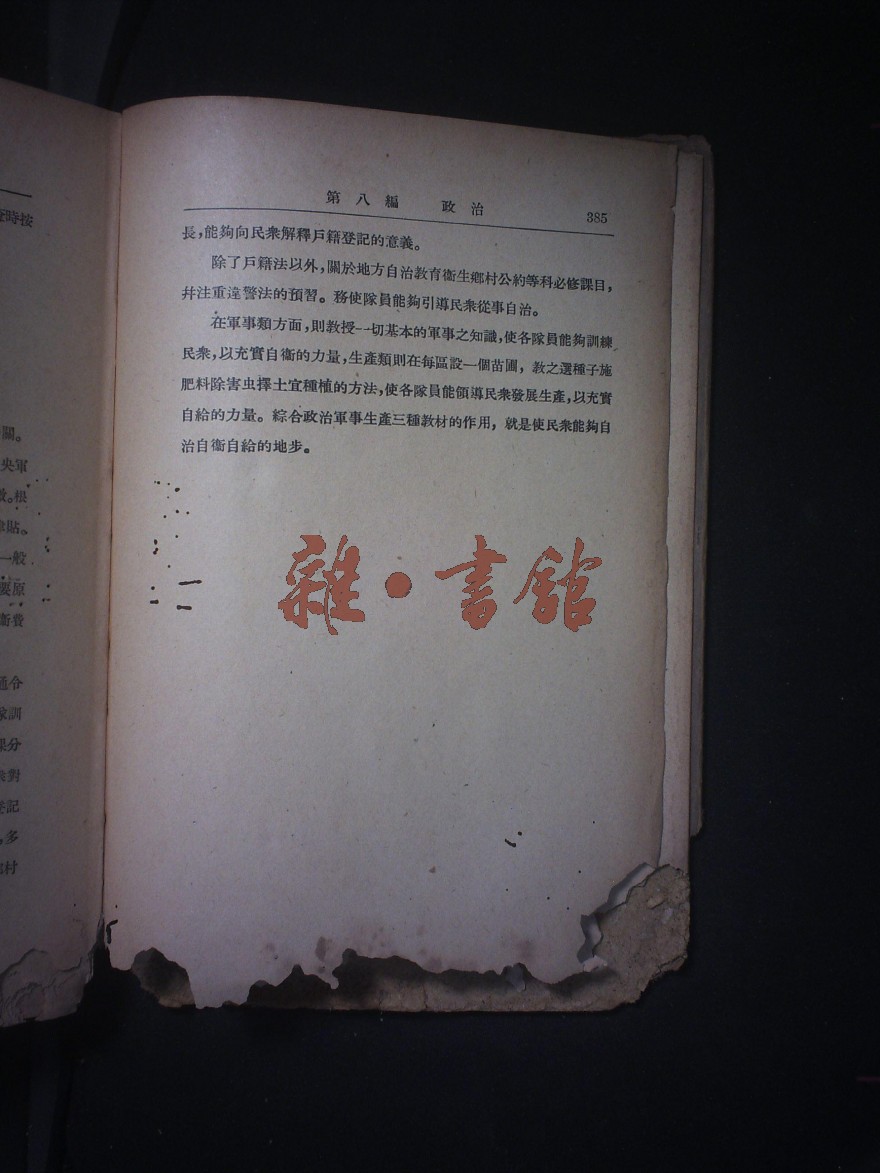 第八編 政治 385
長,能夠向民衆解釋戶籍登記的意義。
除了戶籍法以外,關於地方自治教育衞生鄉村公約等科必修課目,
幷注重違警法的預習。務使隊員能夠引導民衆從事自治。
在軍事類方面,則教授一切基本的軍事之知識,使各隊員能夠訓練
民衆,以充實自衞的力量,生產類則在每區設一個苗圃,教之選種子施
肥料除害虫擇土宜種植的方法,使各隊員能領導民衆發展生產,以充實
自給的力量。綜合政治軍事生產三種教材的作用,就是使民衆能夠自
治自衞自給的地步。
雜·書館
時按
關。
央軍
根
貼。
一般
要原
衞費
通令
訓
分
對
登記
多
村